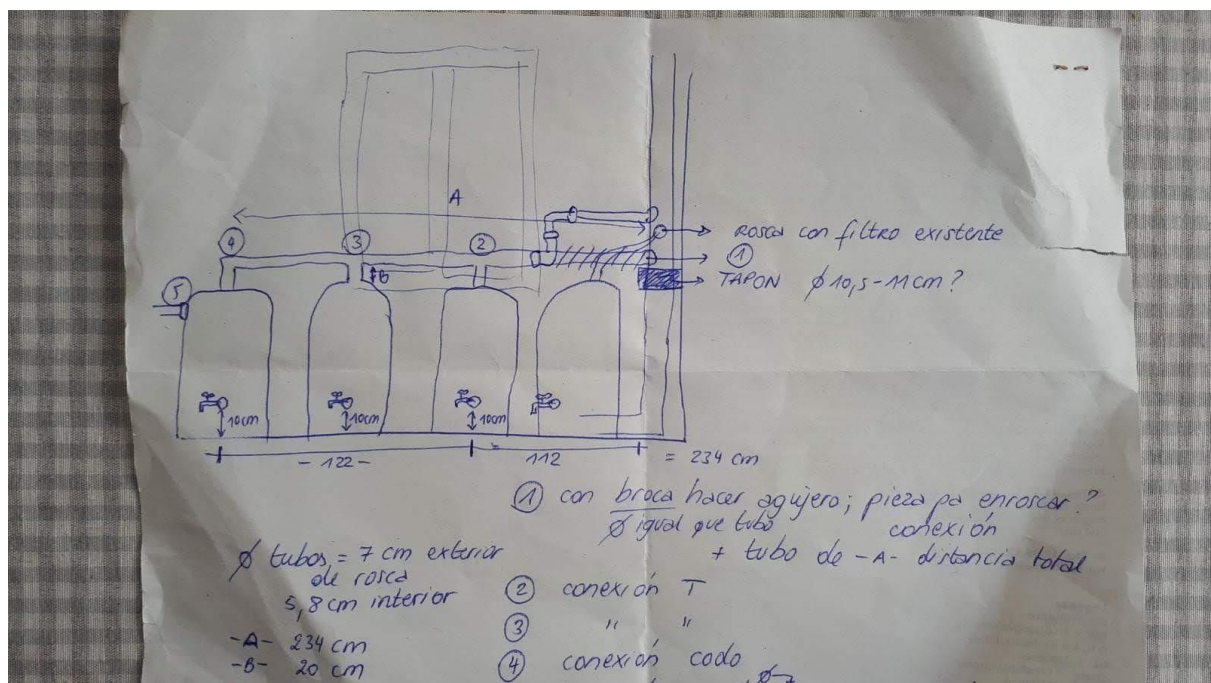 A
④ ③ ②
rosca con filtro existente
①
B
TAPON ϕ 10,5-11cm?
⑤
10cm 10cm 10cm
- 122 - 112 = 234 cm
① con broca hacer agujero; pieza pa enroscar?
ϕ igual que tubo conexión
+ tubo de -A- distancia total
ϕ tubos = 7 cm exterior
de rosca
5,8cm interior
② conexión T
③ " "
-A- 234 cm
-B- 20 cm
④ conexión codo